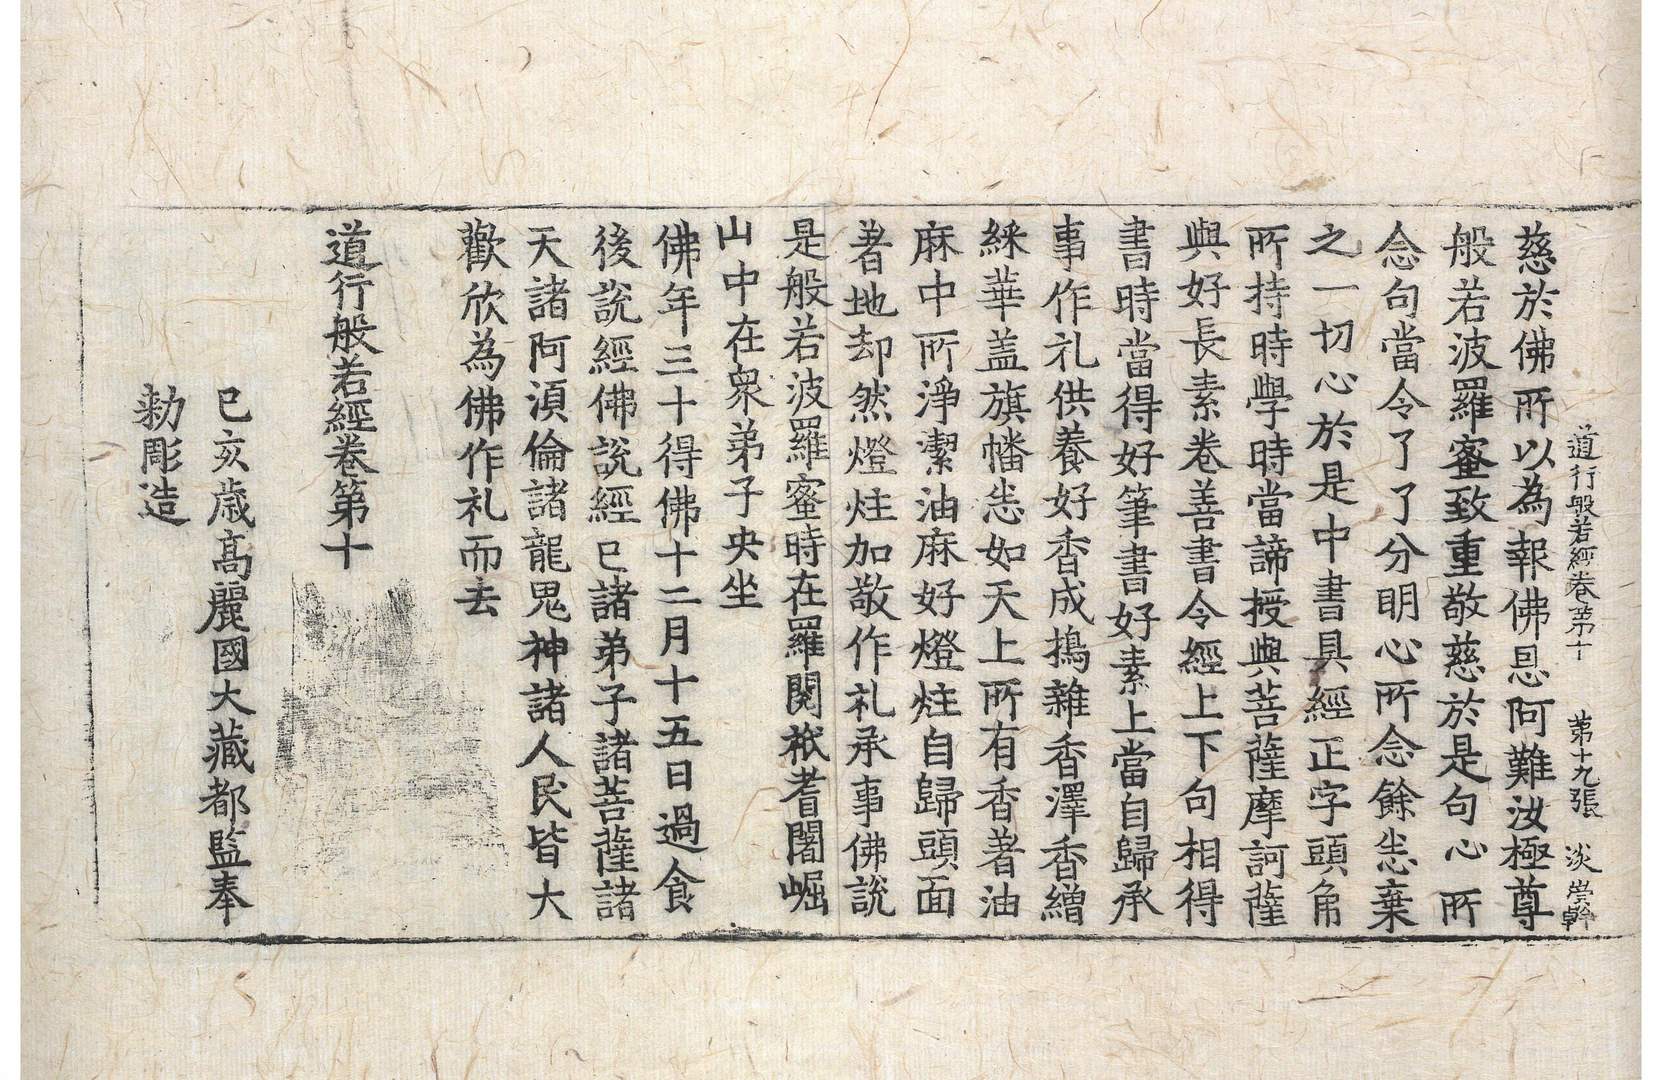 道行般若經卷第十　第十九張　淡
慈於佛所以為報佛恩阿難汝極尊
般若波羅蜜致重敬慈於是句心所
念句當令了了分明心所念餘悉棄
之一切心於是中書具經正字頭角
所持時學時當諦授與菩薩摩訶薩
與好長素卷善書令經上下句相得
書時當得好筆書好素上當自歸承
事作礼供養好香成擣雜香澤香繒
綵華盖旗幡悉如天上所有香著油
麻中所淨潔油麻好燈炷自歸頭面
著地却然燈炷加敬作礼承事佛說
是般若波羅蜜時在羅閱祇耆闍崛
山中在衆弟子央坐
佛年三十得佛十二月十五日過食
後說經佛說經已諸弟子諸菩薩諸
天諸阿湏倫諸龍鬼神諸人民皆大
歡欣為佛作礼而去
道行般若經卷第十
己亥歲高麗國大藏都監奉
勅彫造